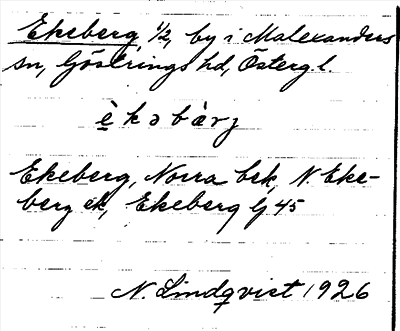 Ekeberg 1/2, by i Malexanders
sn, Göstrings hd, Östergl.
è k ə b à r j
Ekeberg, Norra bek, N. Eke-
berg ek, Ekeberg Gj 45
N. Lindqvist 1926